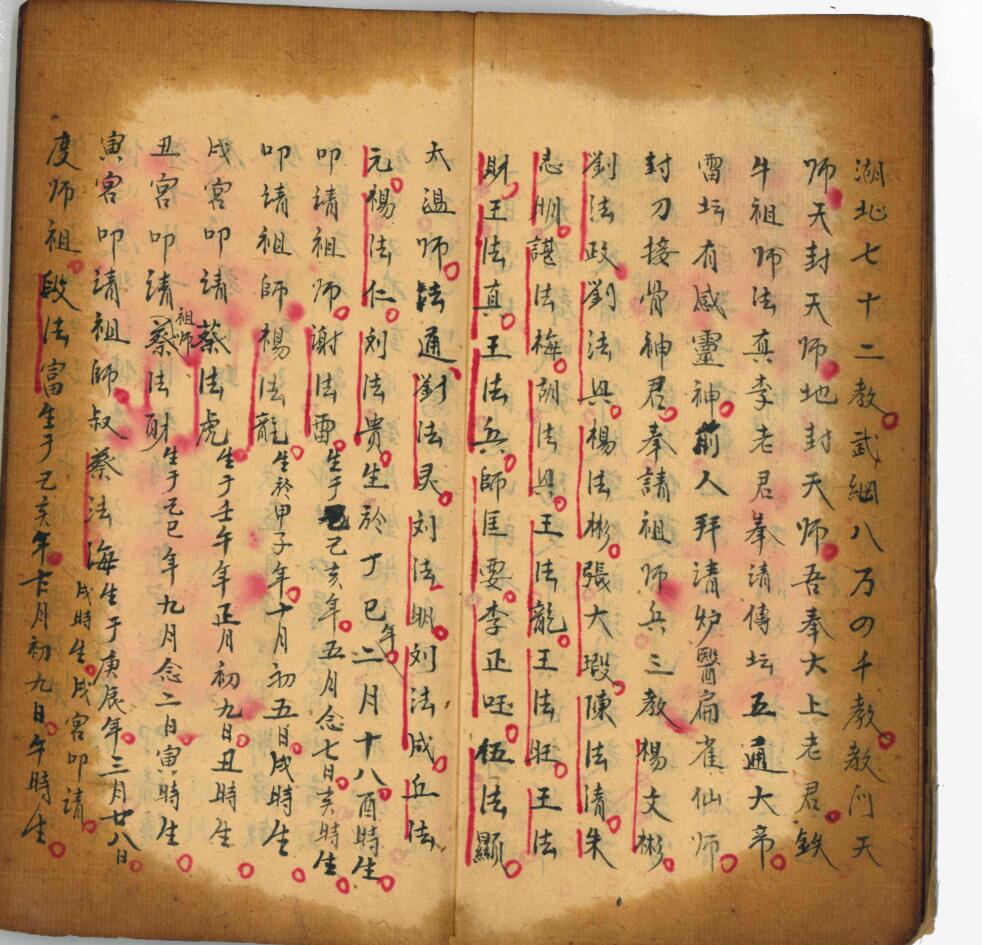 湖北七十二教武綱八万の千教教门天
师天封天师地封天师吾奉大上老君鉄
牛祖师法真李老君奉請傳坛五通大帝
雷坛有感靈神前人拜請炉醫扁雀仙师
封刀接骨神君奉請祖师兵三教楊文彬
劉法政劉法具楊法彬張大瑕陳法清朱
志明諶法梅胡法具王法龍王法旺王法
財王法真王法兵師匡要李正旺伍法顯
太温师法通劉法灵刘法明刘法成丘法
元楊法仁刘法贵生於丁巳年二月十八酉時生
叩请祖师谢法雷生于己亥年五月念七日亥時生
叩請祖師楊法龍生於甲子年十月初五日戌時生
戌宮叩請蔡法虎生于壬午年正月初九日丑時生
丑宮叩請祖师蔡法財生于己巳年九月念二日寅時生
寅宮叩請祖師叔蔡法海生于庚辰年三月廿八日
戌時生戌宮叩請
度师祖段法富生于乙亥年七月初九日午時生